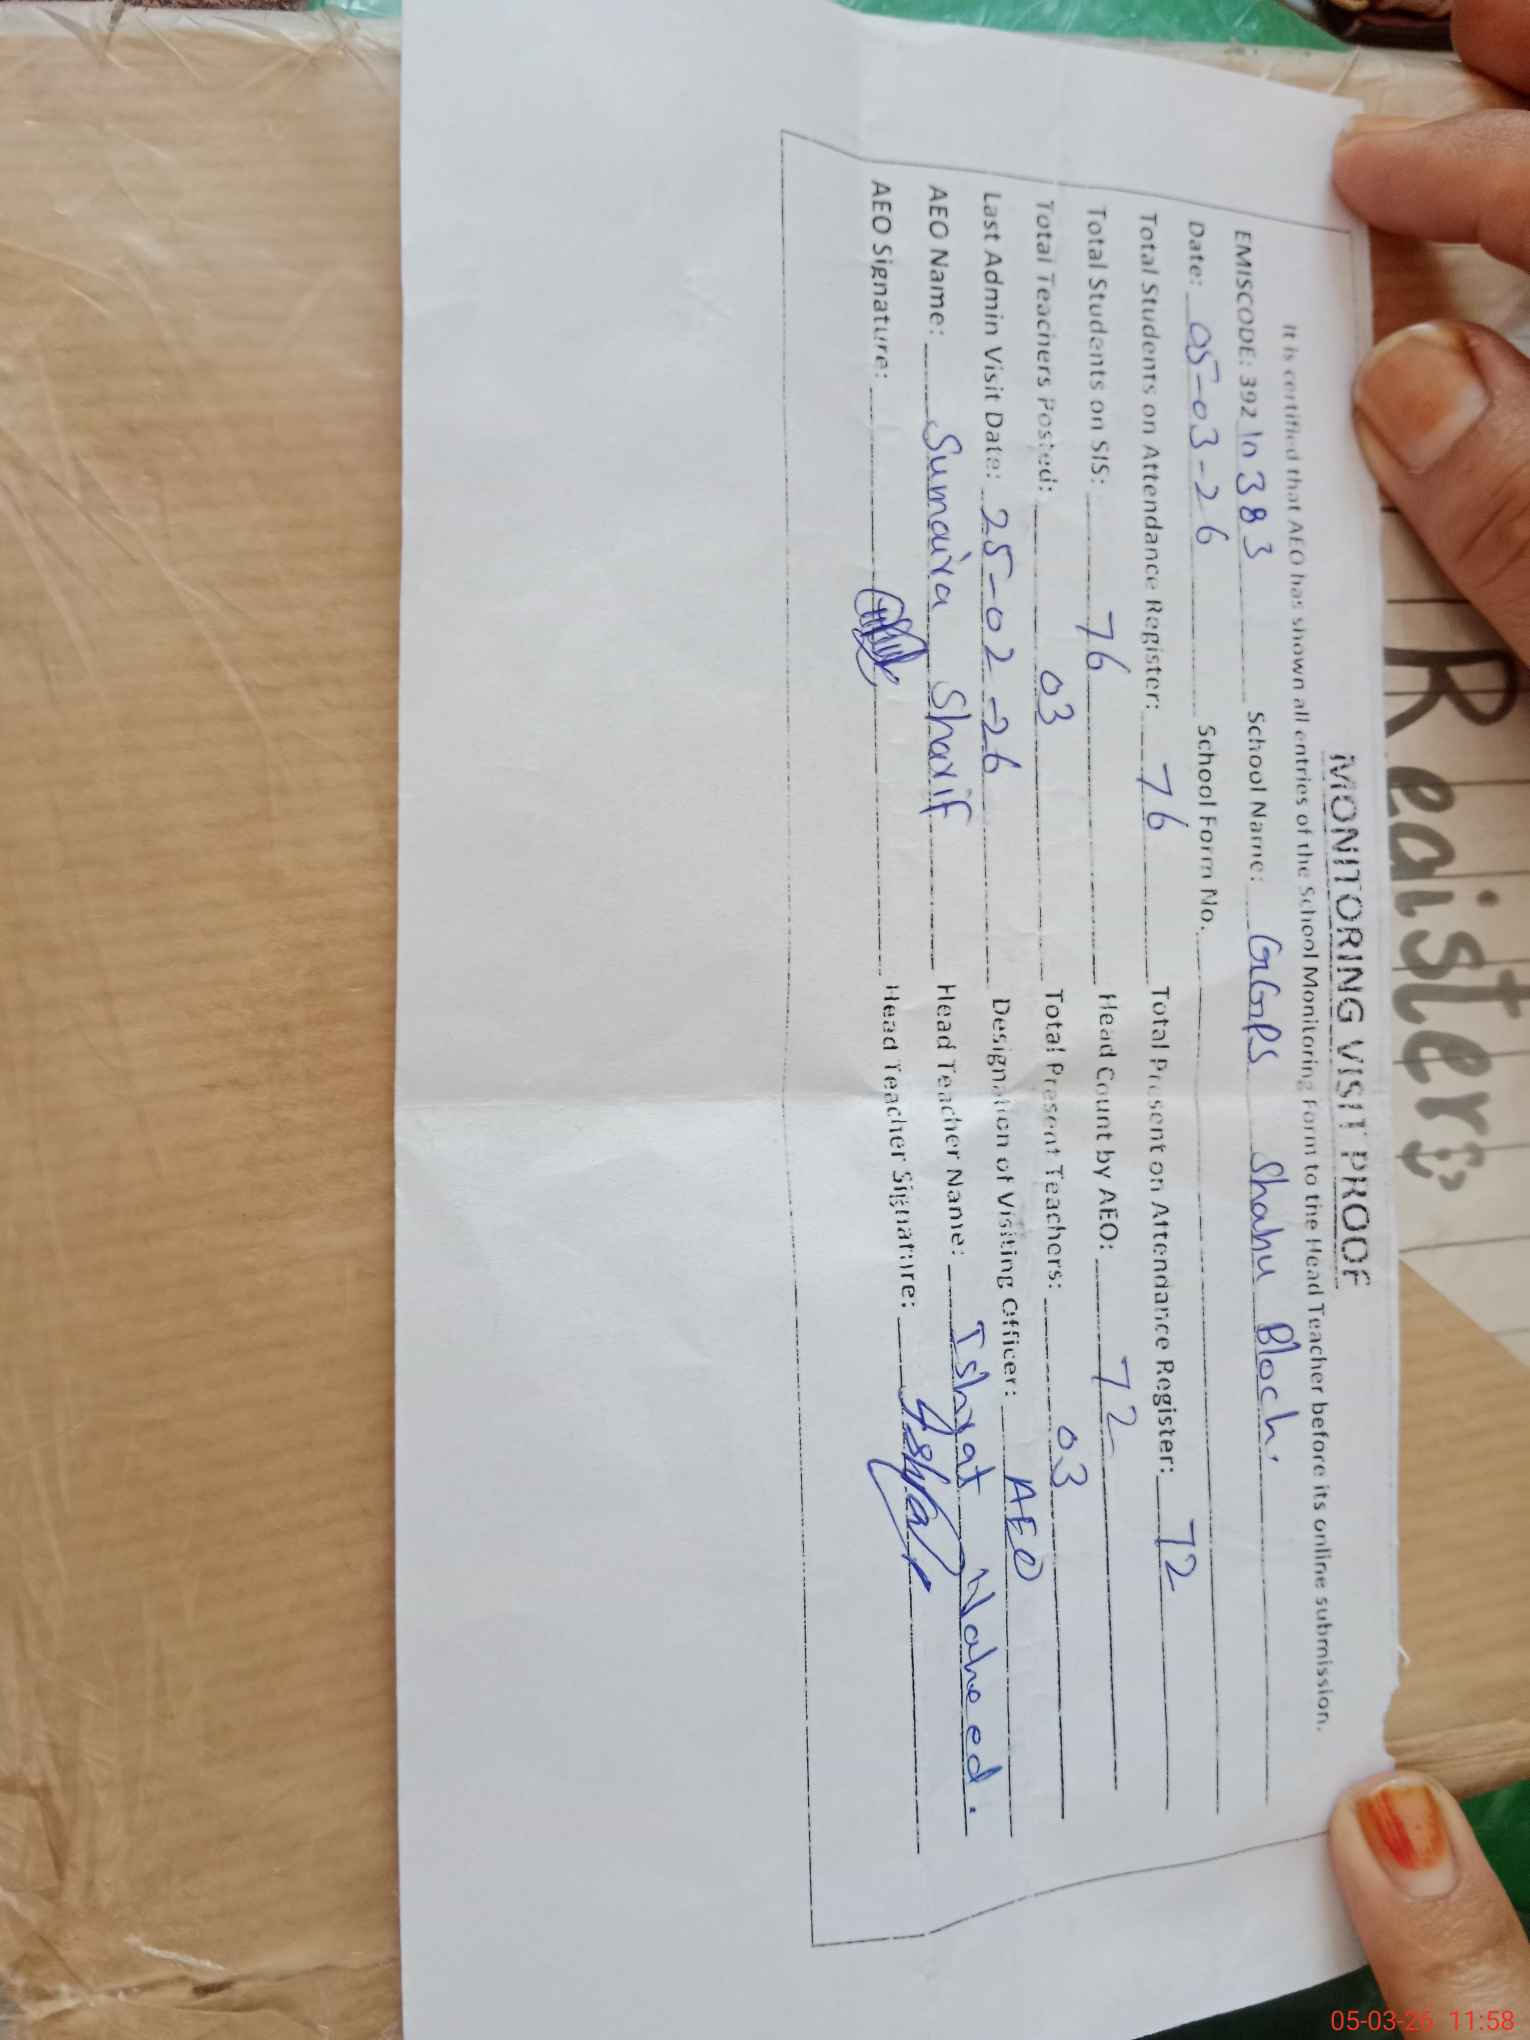 Register
MONITORING VISIT PROOF
It is certified that AEO has shown all entries of the School Monitoring Form to the Head Teacher before its online submission.
EMISCODE: 392 10383 School Name: GGPS Shahu Bloch.
Date: 05-03-26 School Form No.
Total Students on Attendance Register: 76 Total Present on Attendance Register: 72
Total Students on SIS: 76 Head Count by AEO: 72
Total Teachers Posted: 03 Total Present Teachers: 03
Last Admin Visit Date: 25-02-26 Designation of Visiting Officer: AEO
AEO Name: Sumaira Sharif Head Teacher Name: Ishrat Naheed.
AEO Signature: Head Teacher Signature: Ishrat
05-03-26 11:58